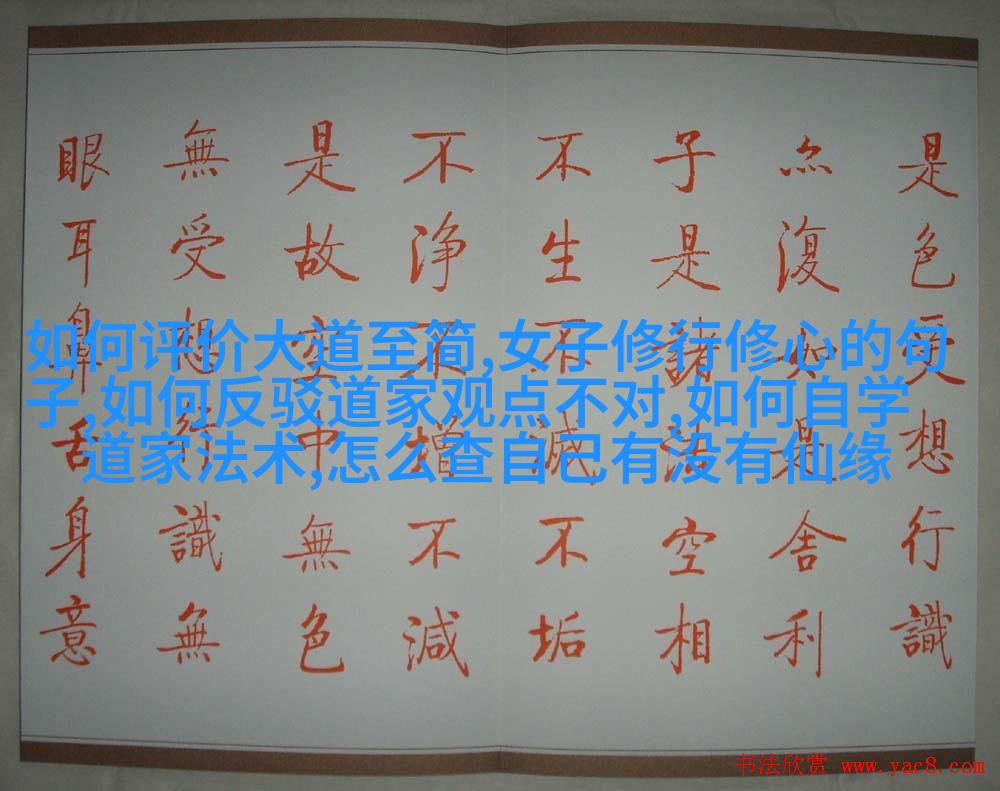 是色受想行識
亦復如是舍利
子是諸法空相
不生不滅不垢
不浄不增不減
是故空中無色
無受想行識無
眼耳鼻舌身意
如何评价大道至简,女子修行修心的句
子,如何反驳道家观点不对,如何自学
道家法术,怎么查自己有没有仙缘
书法欣赏 www.yac8.com